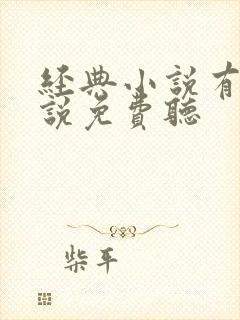 經典小說有
說免費聽
柴平